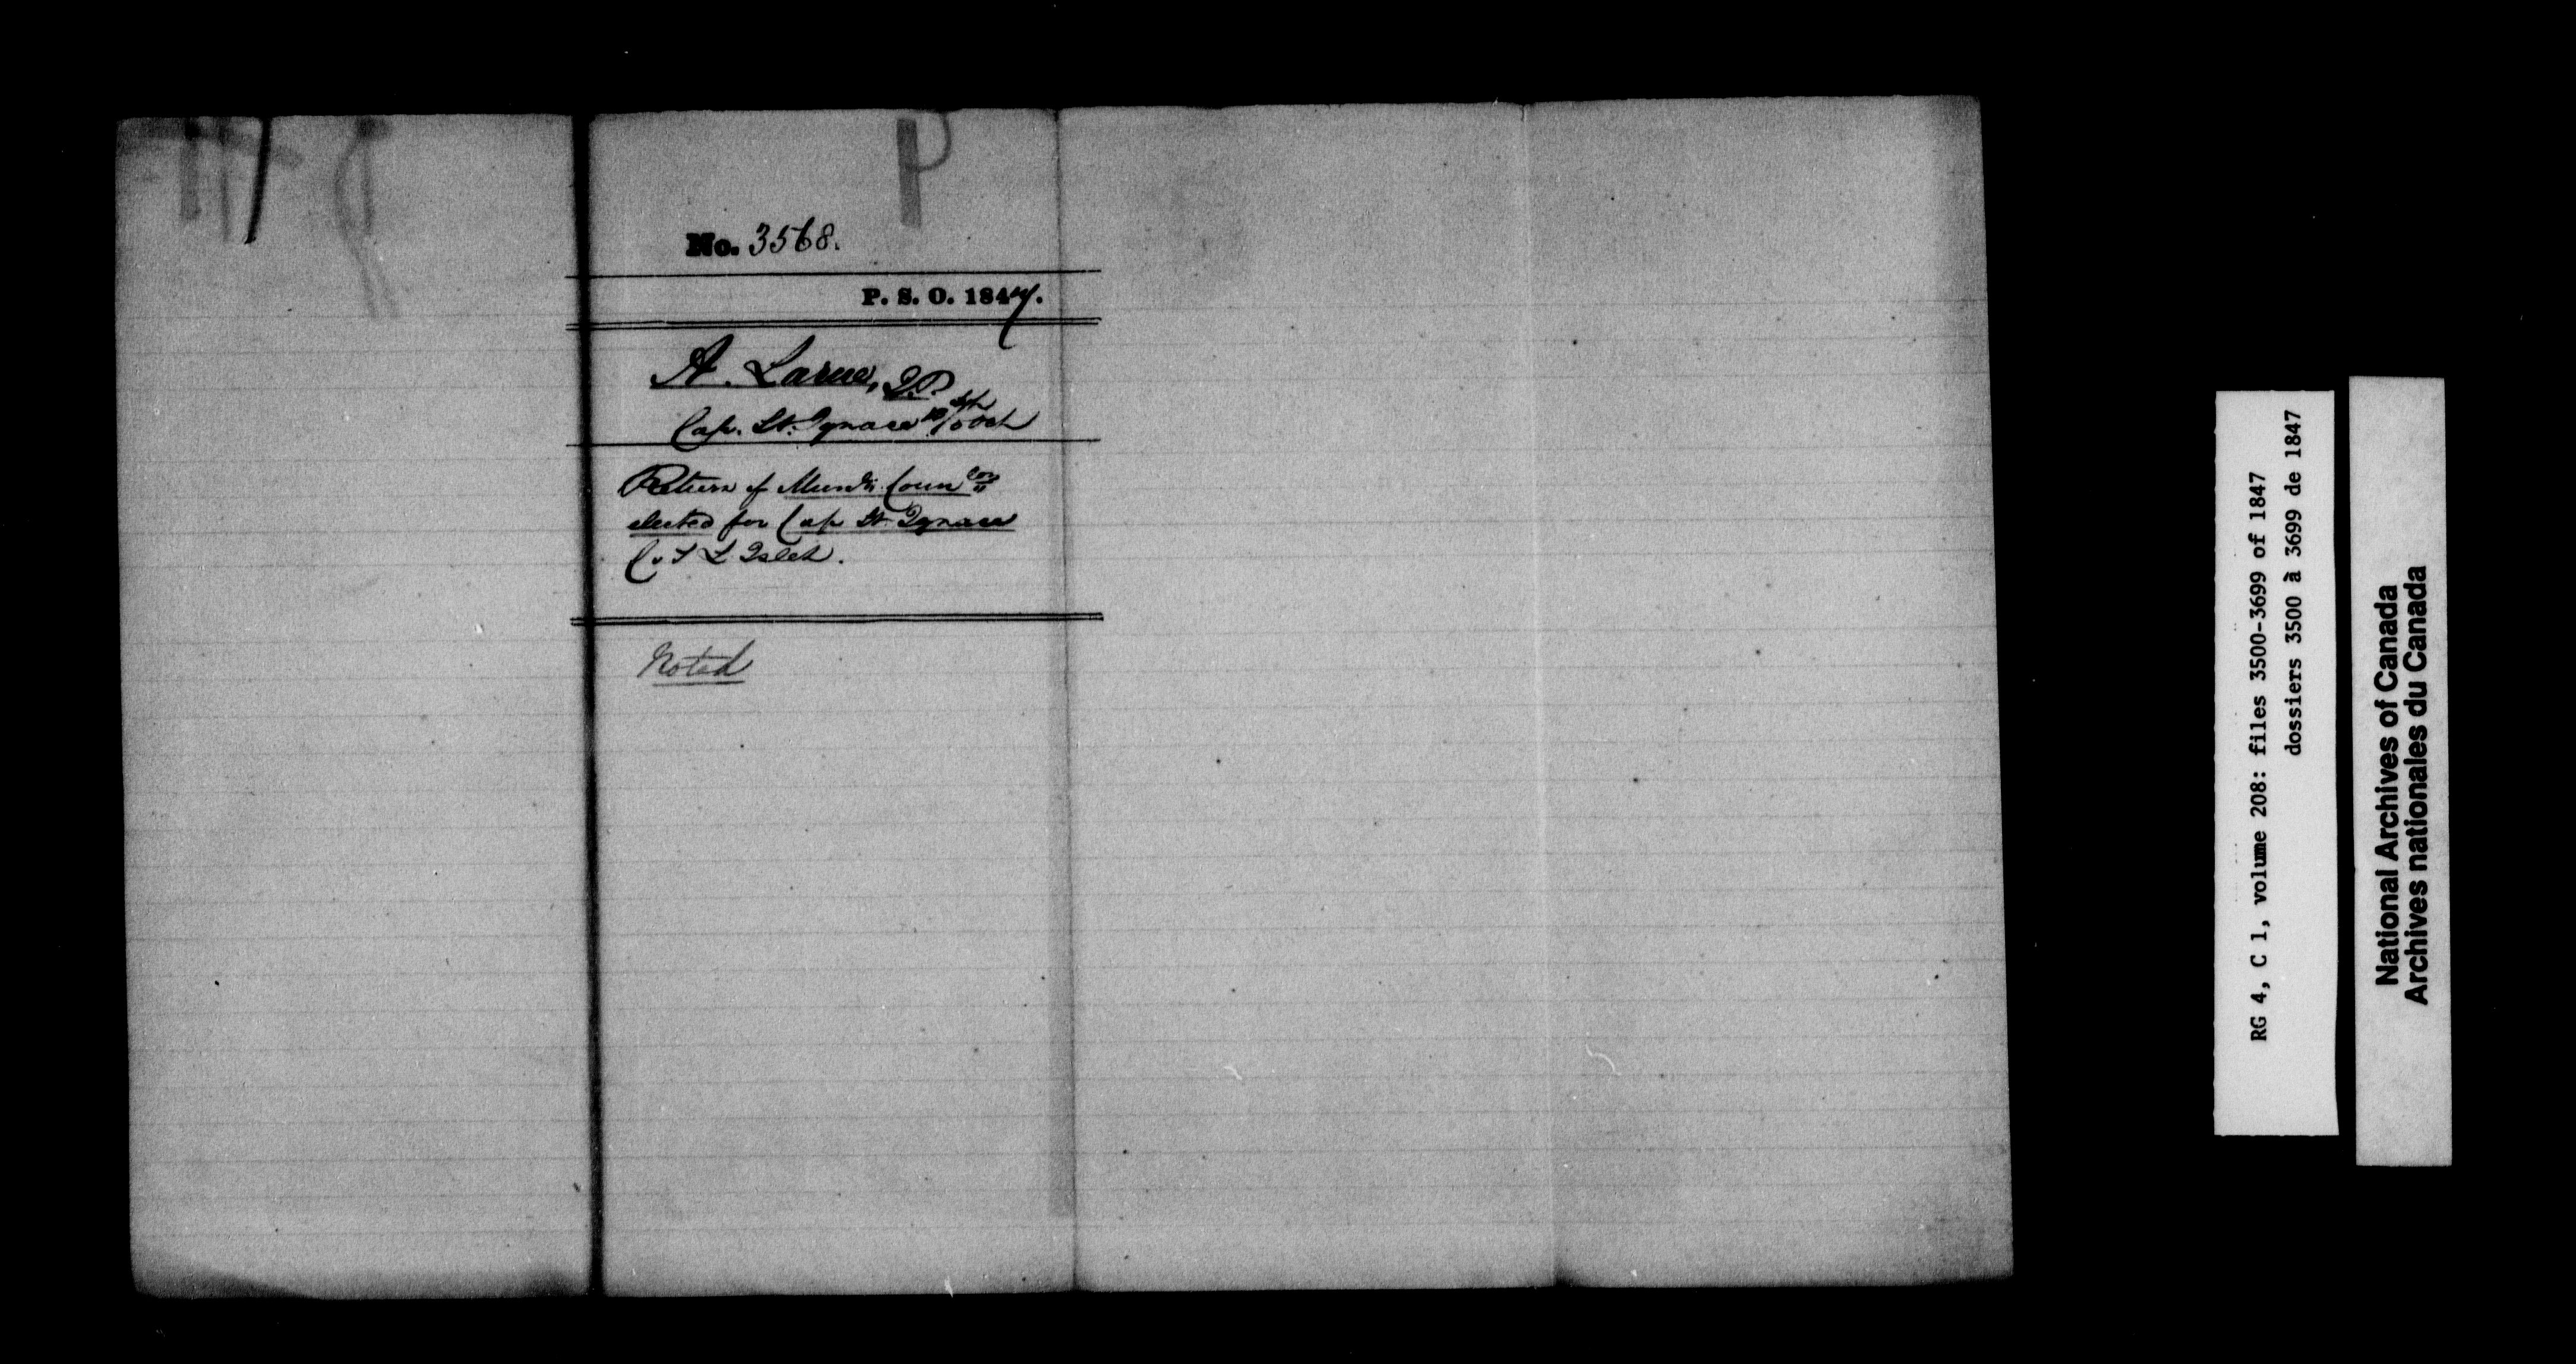 P
No. 3568.
P. S. O. 1847.
A. Larue, J.P.
Cap. St. Ignace
Return of Munic. Coun^lors
elected for Cap St. Ignace
Co. L'Islet.
Noted
RG 4, C 1, volume 208: files 3500-3699 of 1847
dossiers 3500 à 3699 de 1847
National Archives of Canada
Archives nationales du Canada